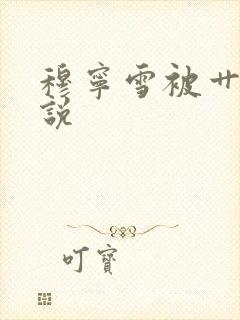 穆寧雪被艹
說
叮寶